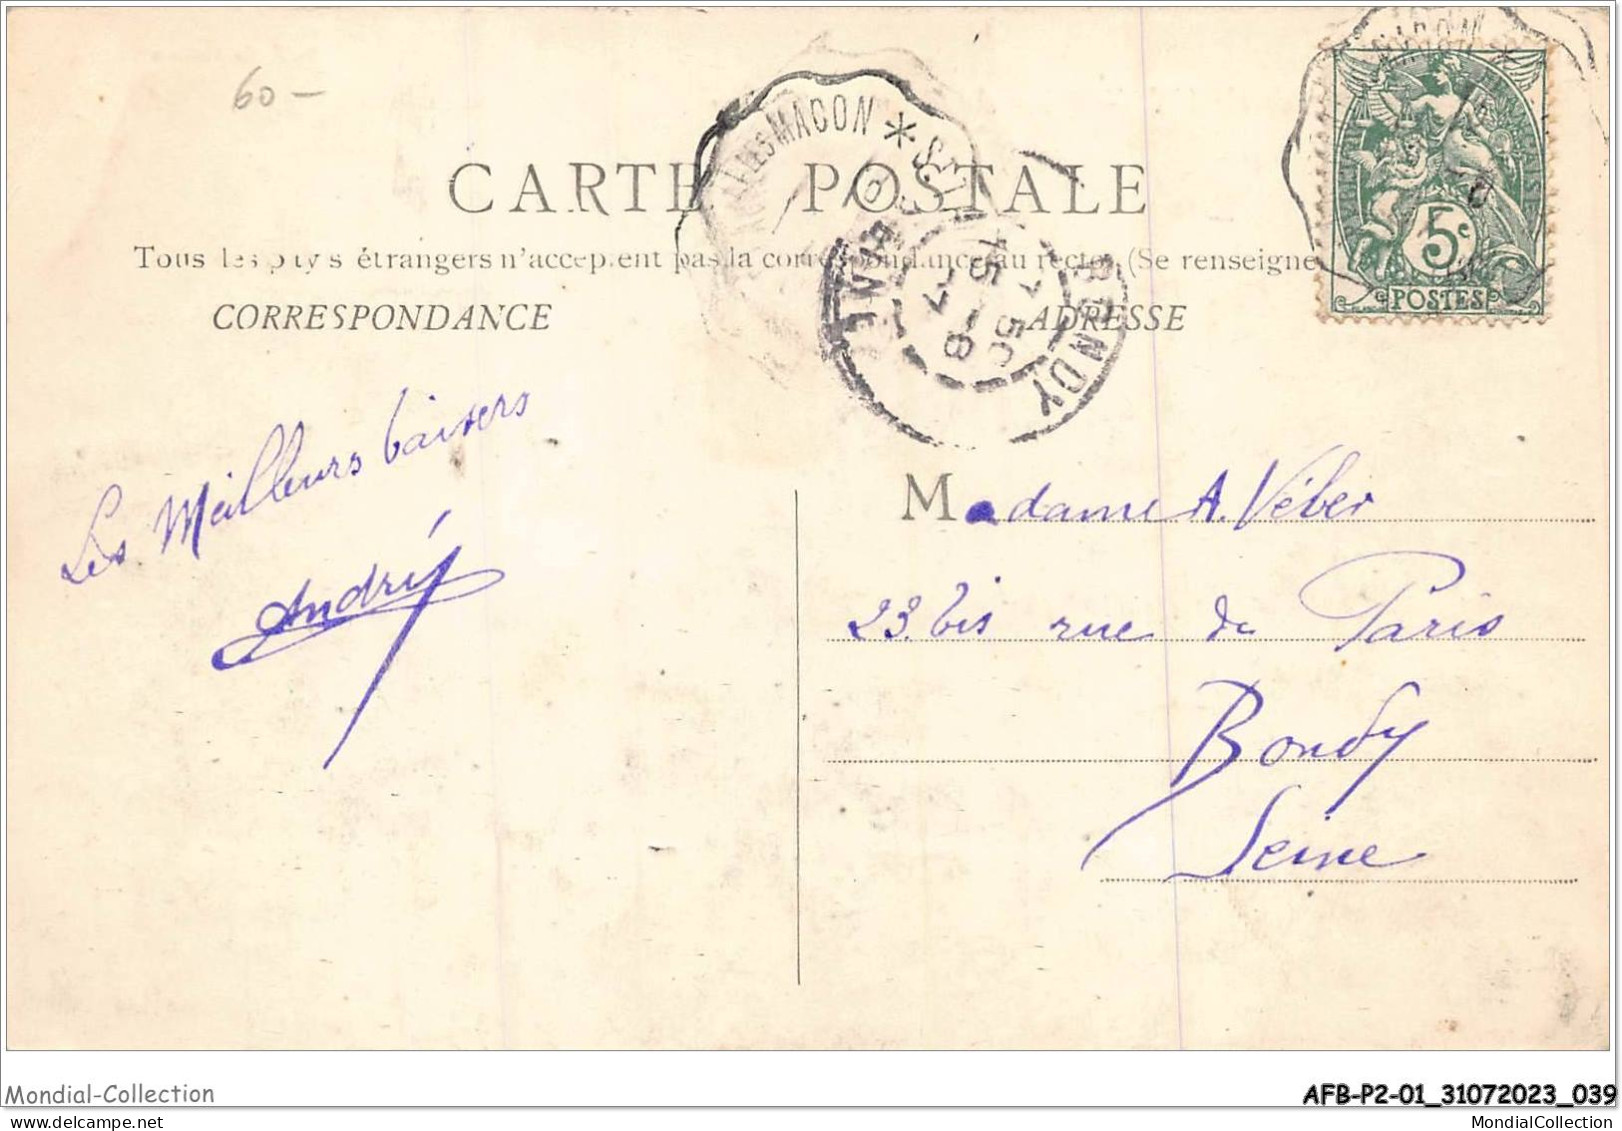 60 -
CARTE POSTALE
Tous les pays étrangers n'acceptent pas la correspondance au recto. (Se renseigne
CORRESPONDANCE
ADRESSE
MACON * ST
BONDY
SEINE
15-8
07
5c
POSTES
Les Meilleurs baisers
André
Madame A. Véber
23 bis rue de Paris
Bondy
Seine
Mondial-Collection
AFB-P2-01_31072023_039
www.delcampe.net
MondialCollection